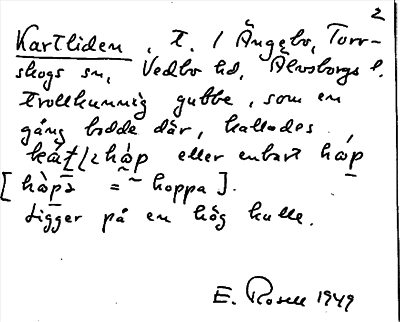 2
Kartliden, t. i Ängebo, Torr-
skogs sn, Vedbo hd, Älvsborgs l.
trollkunnig gubbe, som en
gång bodde där, kallades
eller enbart
[ = hoppa].
Ligger på en hög kulle.
E. Rosell 1949